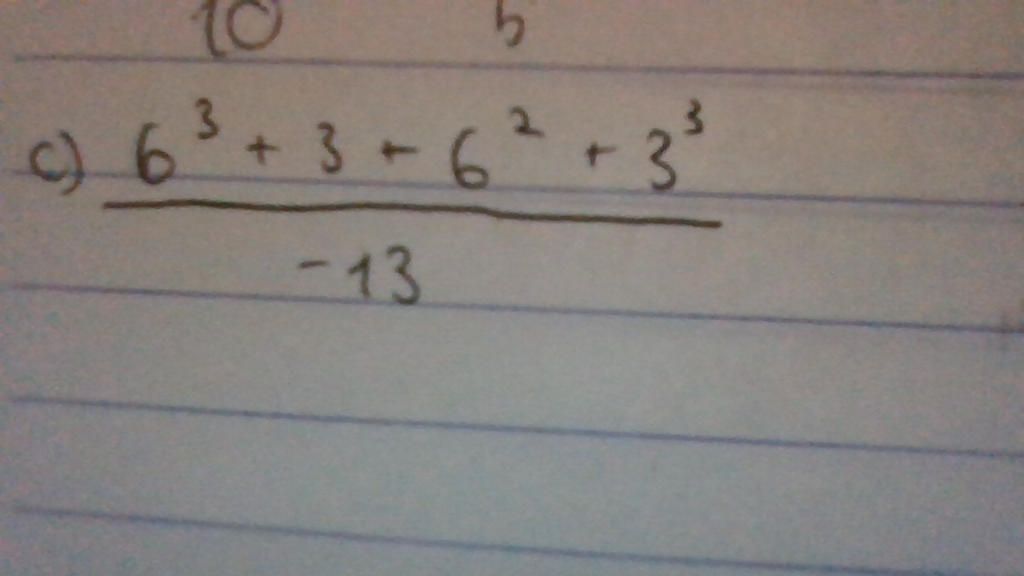 10 5
c) 6³ + 3 + 6² + 3³
-13